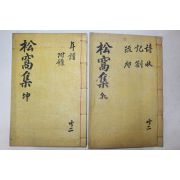 松窩集 乾
詩 收
記 劄
跋 附
共二
松窩集 坤
年譜
附錄
共二